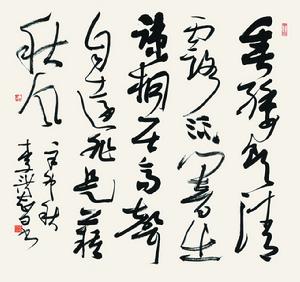 垂緌饮清
露流响出
疏桐居高声
自远非是藉
秋风
辛卯秋